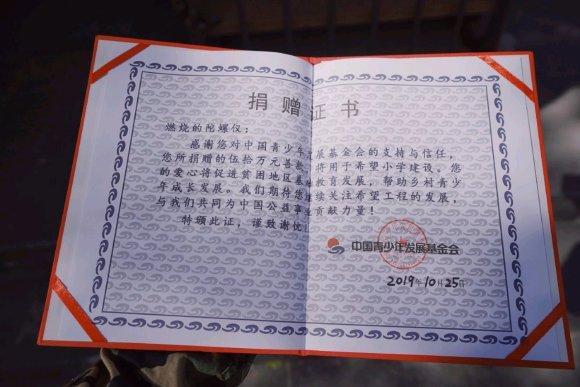 捐赠证书
燃烧的陀螺仪：
感谢您对中国青少年发展基金会的支持与信任，
您所捐赠的伍拾万元善款，将用于希望小学建设。您
的爱心将促进贫困地区基础教育发展，帮助乡村青少
年成长发展。我们期待您继续关注希望工程的发展，
与我们共同为中国公益事业贡献力量！
特颁此证，谨致谢忱
中国青少年发展基金会
2019年10月25日